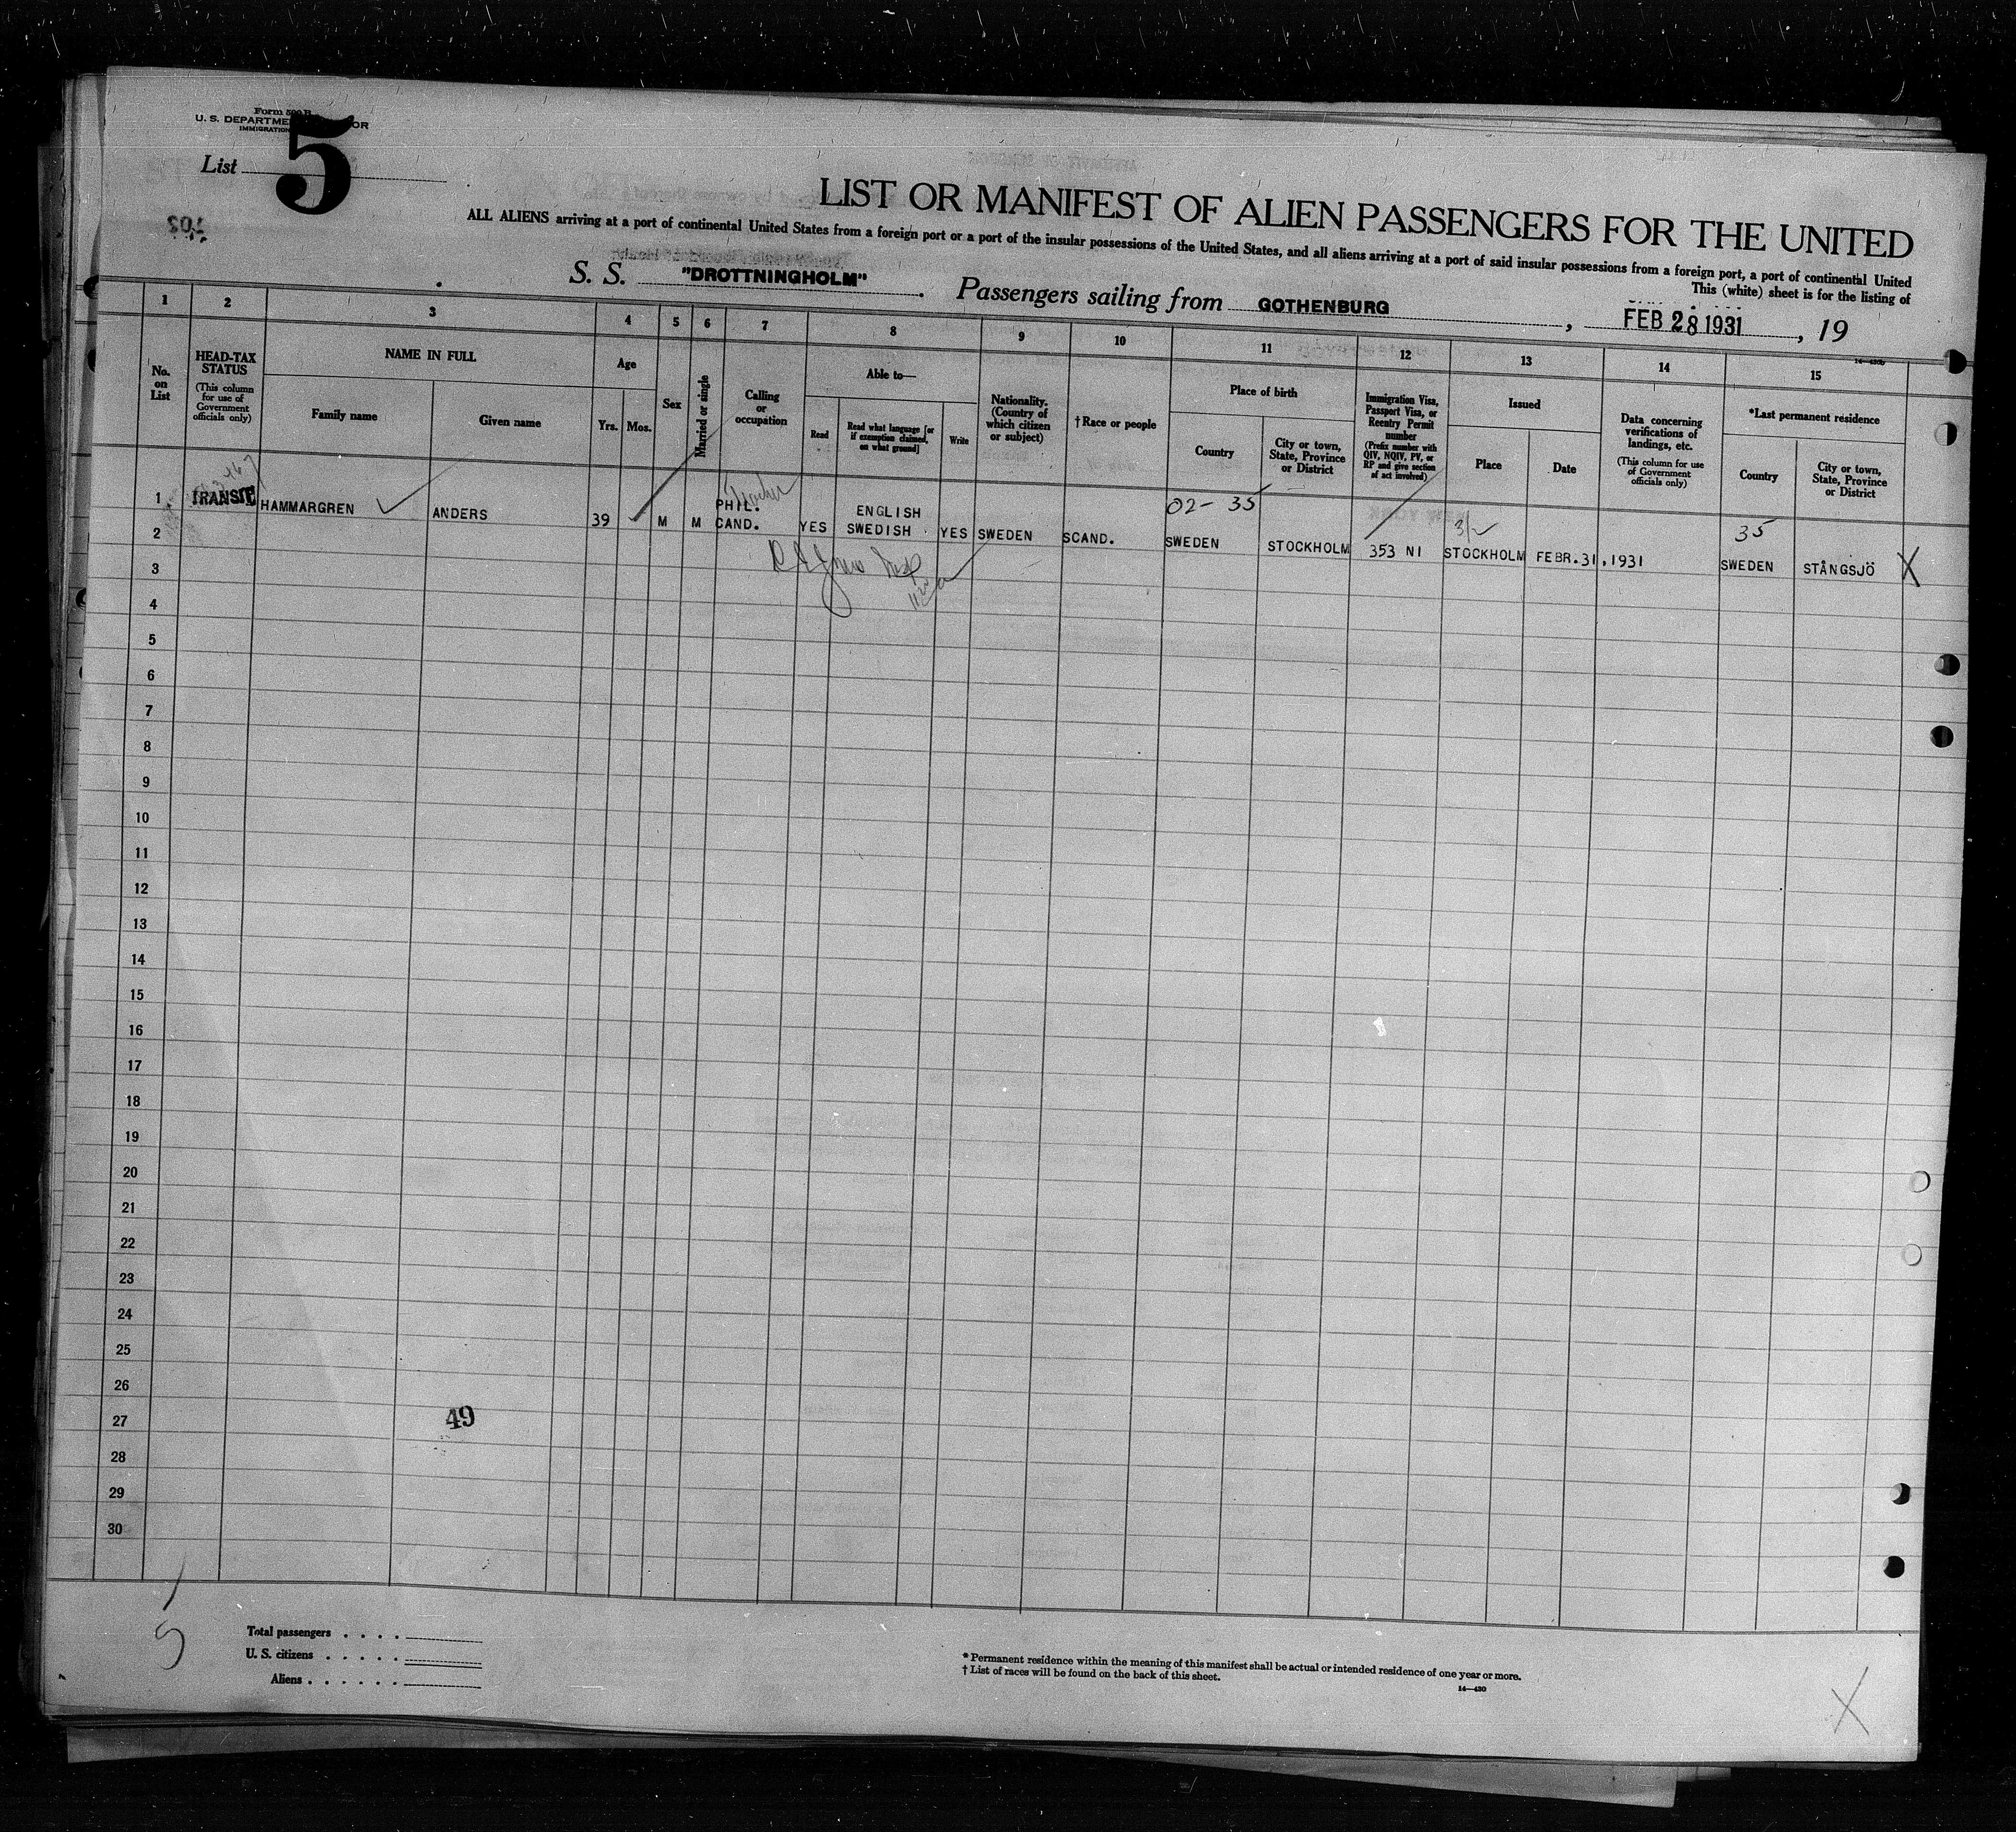 Form 500 B
U. S. DEPARTME OR
IMMIGRATION
List 5
LIST OR MANIFEST OF ALIEN PASSENGERS FOR THE UNITED
ALL ALIENS arriving at a port of continental United States from a foreign port or a port of the insular possessions of the United States, and all aliens arriving at a port of said insular possessions from a foreign port, a port of continental United
This (white) sheet is for the listing of
S. S. "DROTTNINGHOLM" . Passengers sailing from GOTHENBURG , FEB 28 1931 , 19
1 2 3 4 5 6 7 8 9 10 11 12 13 14 15
No. on List
HEAD-TAX STATUS
(This column for use of Government officials only)
NAME IN FULL
Family name
Given name
Age
Yrs.
Mos.
Sex
Married or single
Calling or occupation
Able to—
Read
Read what language [or if exemption claimed, on what ground]
Write
Nationality. (Country of which citizen or subject)
† Race or people
Place of birth
Country
City or town, State, Province or District
Immigration Visa, Passport Visa, or Reentry Permit number
(Prefix number with QIV, NQIV, PV, or RP and give section of act involved)
Issued
Place
Date
Data concerning verifications of landings, etc.
(This column for use of Government officials only)
14—430b
*Last permanent residence
Country
City or town, State, Province or District
02- 35
35
1 TRANSIT HAMMARGREN ANDERS 39 M M PHIL. CAND. YES ENGLISH SWEDISH YES SWEDEN SCAND. SWEDEN STOCKHOLM 353 NI STOCKHOLM FEBR.31,1931 SWEDEN STÅNGSJÖ X
2
3
4
5
6
7
8
9
10
11
12
13
14
15
16
17
18
19
20
21
22
23
24
25
26
27
28
29
30
49
Total passengers . . . .
U. S. citizens . . . . .
Aliens . . . . . .
* Permanent residence within the meaning of this manifest shall be actual or intended residence of one year or more.
† List of races will be found on the back of this sheet.
14—430
X